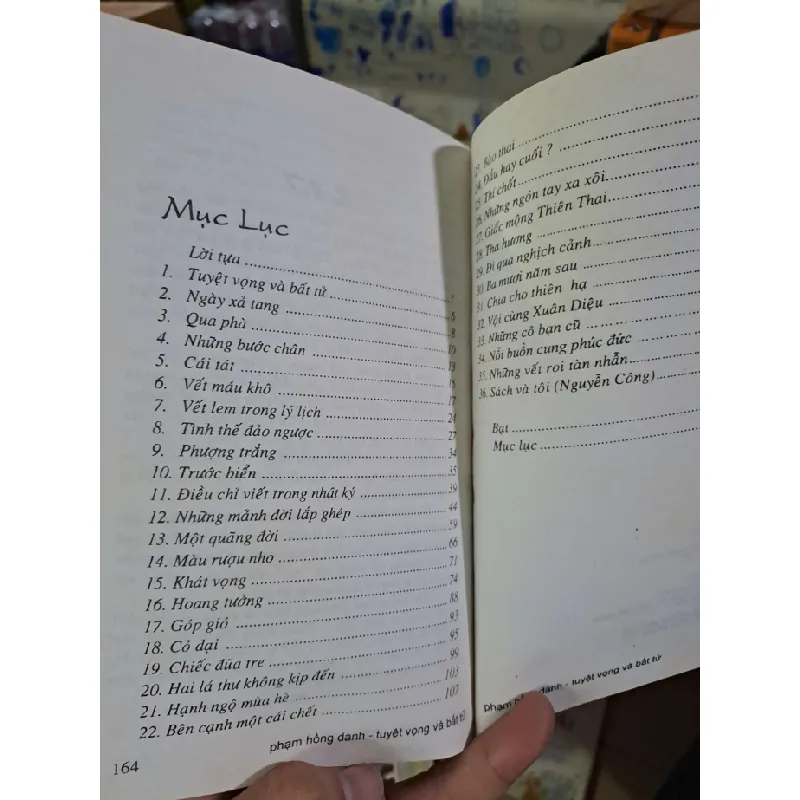 Mục Lục
Lời tựa
1. Tuyệt vọng và bất tử
2. Ngày xả tang 6
3. Qua phà 8
4. Những bước chân 10
5. Cái tát 13
6. Vết máu khô 15
7. Vết lem trong lý lịch 17
8. Tình thế đảo ngược 24
9. Phượng trắng 27
10. Trước biển 34
11. Điều chỉ viết trong nhật ký 35
12. Những mảnh đời lắp ghép 39
13. Một quãng đời 44
14. Màu rượu nho 59
15. Khát vọng 66
16. Hoang tưởng 71
17. Góp gió 74
18. Cỏ dại 88
19. Chiếc đũa tre 93
20. Hai lá thư không kịp đến 95
21. Hạnh ngộ mùa hè 99
22. Bên cạnh một cái chết 103
107
phạm hồng danh - tuyệt vọng và bất tử
164
23. Bào thai
24. Đầu hay cuối ?
25. Thí chốt
26. Những ngón tay xa xôi
27. Giấc mộng Thiên Thai
28. Tha hương
29. Đi qua nghịch cảnh
30. Ba mươi năm sau
31. Chia cho thiên hạ
32. Vội cùng Xuân Diệu
33. Những cô bạn cũ
34. Nỗi buồn cung phúc đức
35. Những vết roi tàn nhẫn
36. Sách và tôi (Nguyễn Công)
Bạt
Mục lục
phạm danh - tuyệt vọng và bất tử